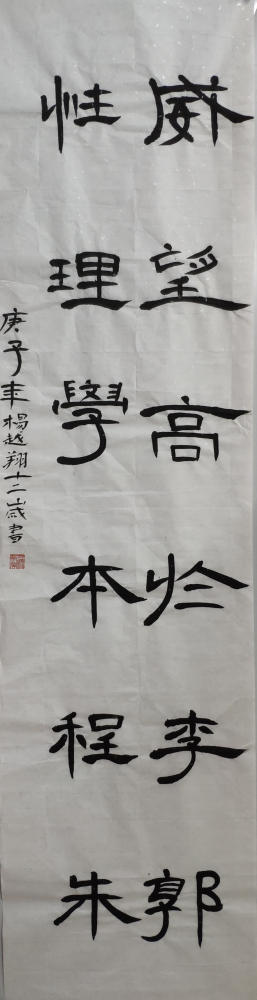 威望高於李郭
性理學本程朱
庚子年楊越翔十二歲書